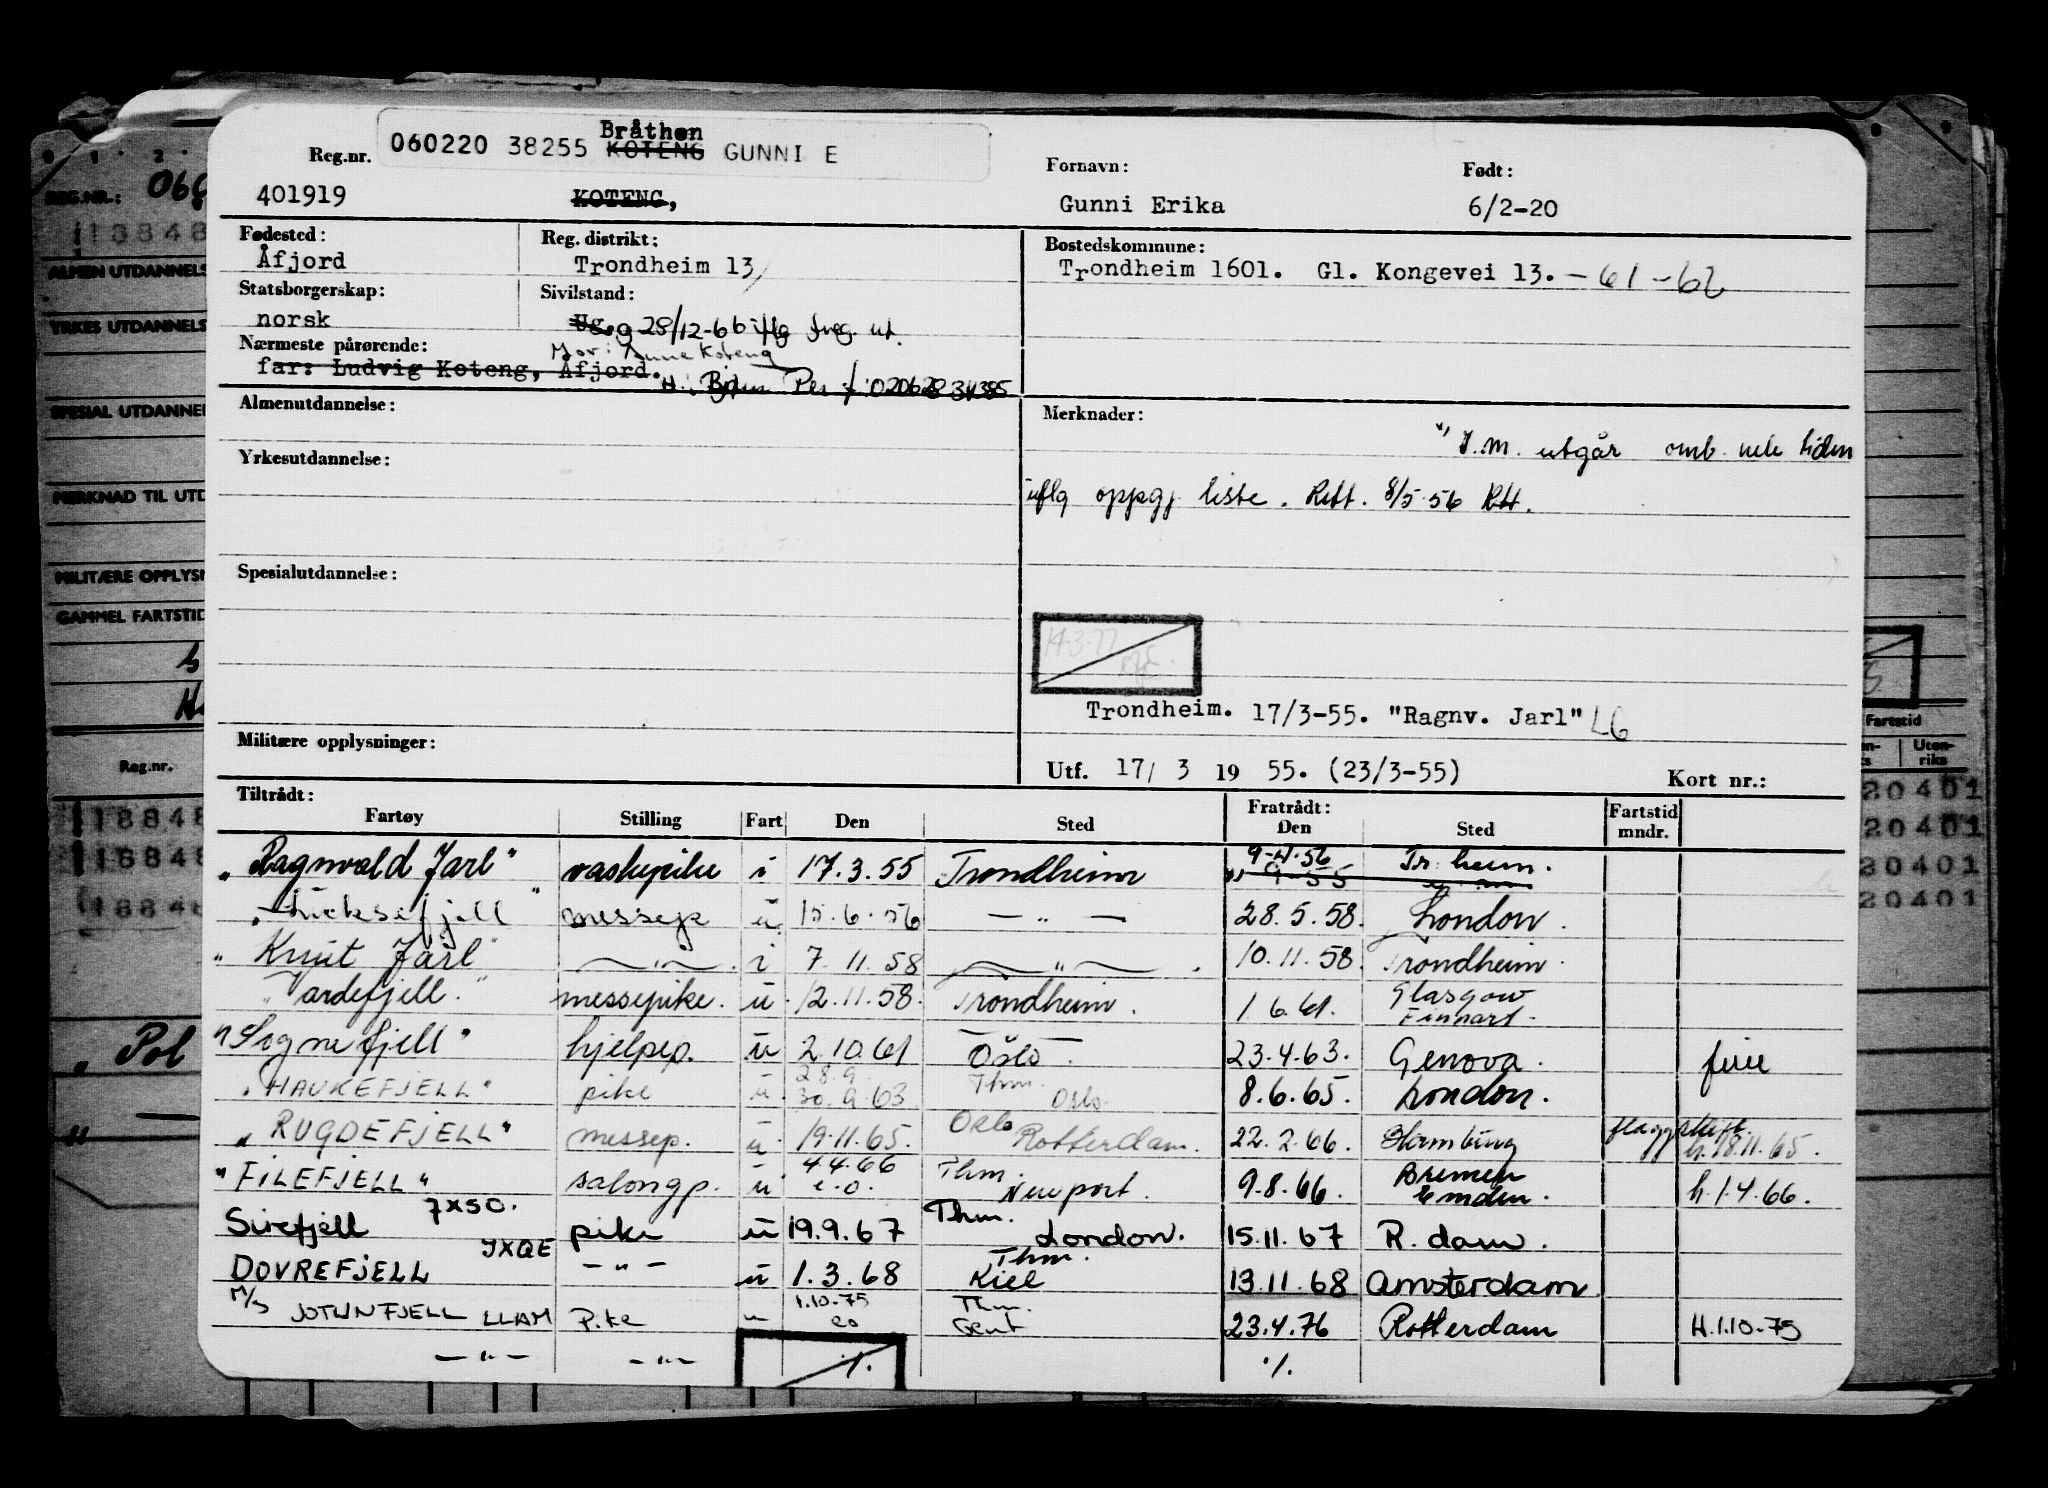 Bråthen
Reg.nr. 060220 38255 KOTENG GUNNI E
Fornavn: Født:
401919 KOTENG, Gunni Erika 6/2-20
Fødested: Reg. distrikt: Bostedskommune:
Åfjord Trondheim 13 Trondheim 1601. Gl. Kongevei 13. - 61 - 62
Statsborgerskap: Sivilstand:
norsk Ug. g 28/12-66 iflg treg. ut.
Nærmeste pårørende: Mor: Anne Koteng
far: Ludvig Koteng, Åfjord. H.: Per f.
Almenutdannelse: Merknader:
") I.M. utgår omb. hele tiden
Yrkesutdannelse:
iflg oppgj. liste. Rett. 8/5-56
Spesialutdannelse:
14-3-77
Trondheim. 17/3-55. "Ragnv. Jarl" LG
Militære opplysninger:
Utf. 17/ 3 19 55. (23/3-55) Kort nr.:
Tiltrådt: Fratrådt: Fartstid
Fartøy Stilling Fart Den Sted Den Sted mndr.
"Ragnvald Jarl" vaskepike i 17.3.55 Trondheim 9-4-56 Tr.heim.
"Lucksefjell" messepe u 15.6.56 — " — 28.5.58. London.
"Knut Jarl" — " — i 7.11.58 — " — . 10.11.58. Trondheim.
"Vardefjell." messepike. u. 12.11.58. Trondheim. 1.6.61. Glasgow
Finnart.
"Sognefjell" hjelpep. u 2.10.61 Oslo. 23.4.63. Genova. ferie
28.9 Thm.
"HAUKEFJELL" pike u. 30.9.63 Oslo. 8.6.65. London.
Oslo flaggskift.
"RUGDEFJELL" messep. u 19.11.65. Rotterdam. 22.2.66. Hamburg h.18.11.65.
4.4.66 Thm. Bremen
"FILEFJELL" salongp. u e.o. Newport. 9.8.66. Emden. h.1.4.66.
7XSO. Thm.
Sirefjell pike u 19.9.67 London. 15.11.67 R.dam.
JXQE Thm.
DOVREFJELL — " — u 1.3.68 Kiel 13.11.68 Amsterdam
M/S 1.10.75 Thm.
JOTUNFJELL LLAM Pike u eo Gent 23.4.76 Rotterdam H.1.10-75
— " — — " — ./. ./.
REG.NR.: 060
18848
ALMEN UTDANNELS
YRKES UTDANNELS
SPESIAL UTDANNEL
MERKNAD TIL UTD
MILITÆRE OPPLYSN
GAMMEL FARTSTID
Reg.nr.
18848
18848
18848
"Pol
Fartstid
Uten-
riks
20401
20401
20401
20401